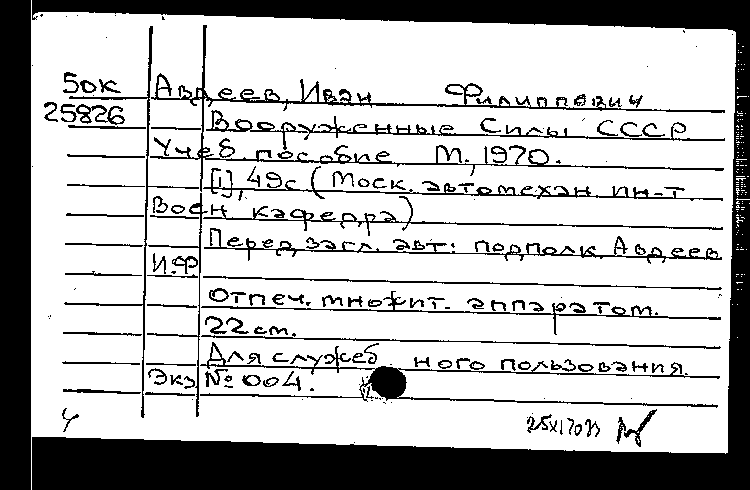 5ок Авдеев, Иван Филиппович
25826 Вооруженные Силы СССР
Учеб. пособие М., 1970.
[1], 49с (Моск. автомехан ин-т
Воен кафедра).
Перед загл. авт: подполк. Авдеев
И.Ф
Отпеч. множит. аппаратом.
22 см.
Для служеб ного пользования.
Экз № 004.